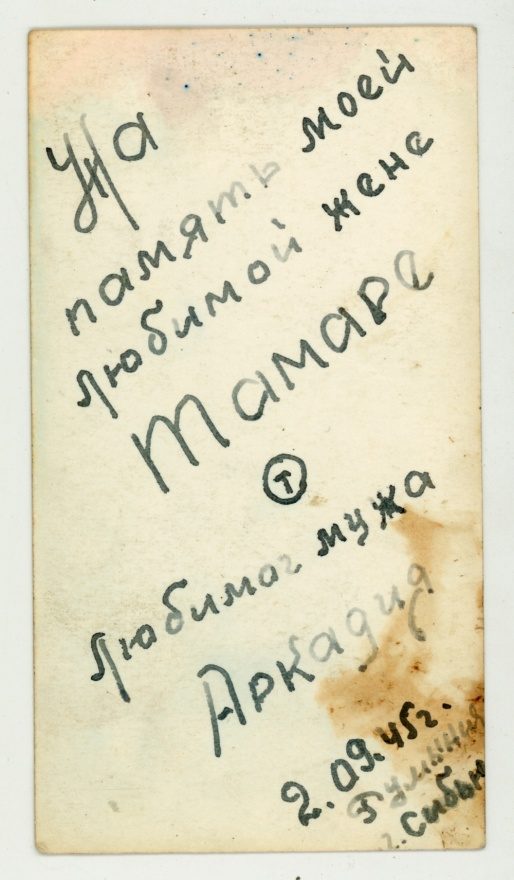 На
память моей
любимой жене
Тамаре
Т
Любимог мужа
Аркадия
2.09.45г.
Румыния
г. Сибын